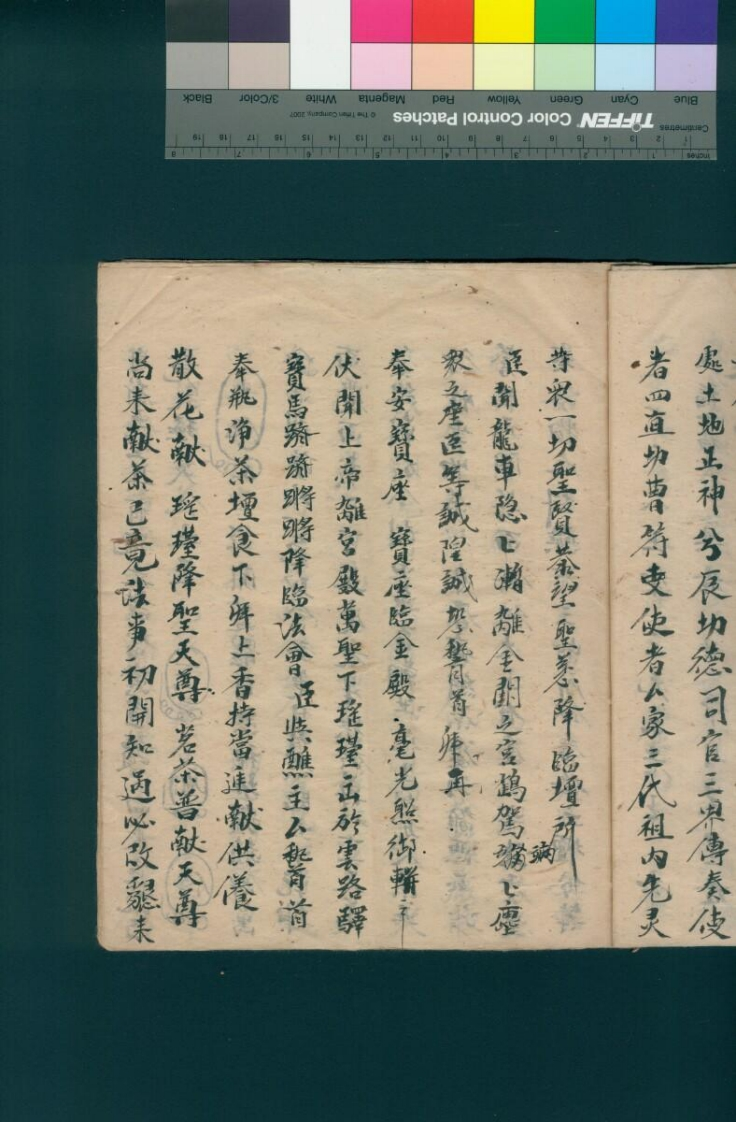 處土地正神兮辰功德司官三界傳奏使
者四直功曹符吏使者厶家三代祖内先灵
等眾一切聖賢恭望聖慈降臨壇所
臣聞龍車隐匕漸離金闕之宮鶴駕匕塵
眾之座臣等誠隍誠恐稽首 再
奉安寶座 寶座臨金殿 毫光照御
伏聞上帝離宮殿萬聖下瑤堦 於雲路驛
寶馬蹡蹡降臨法會 臣與醮主厶稽首
奉瓶淨茶壇食下 上香持當進献供養
散花献 瑤堦降聖天尊 茗茶普献天尊
尚来献茶已竟法事初開知過必改 来
TIFFEN Color Control Patches
© The Tiffen Company, 2007
Centimetres
Inches
Blue Cyan Green Yellow Red Magenta White 3/Color Black